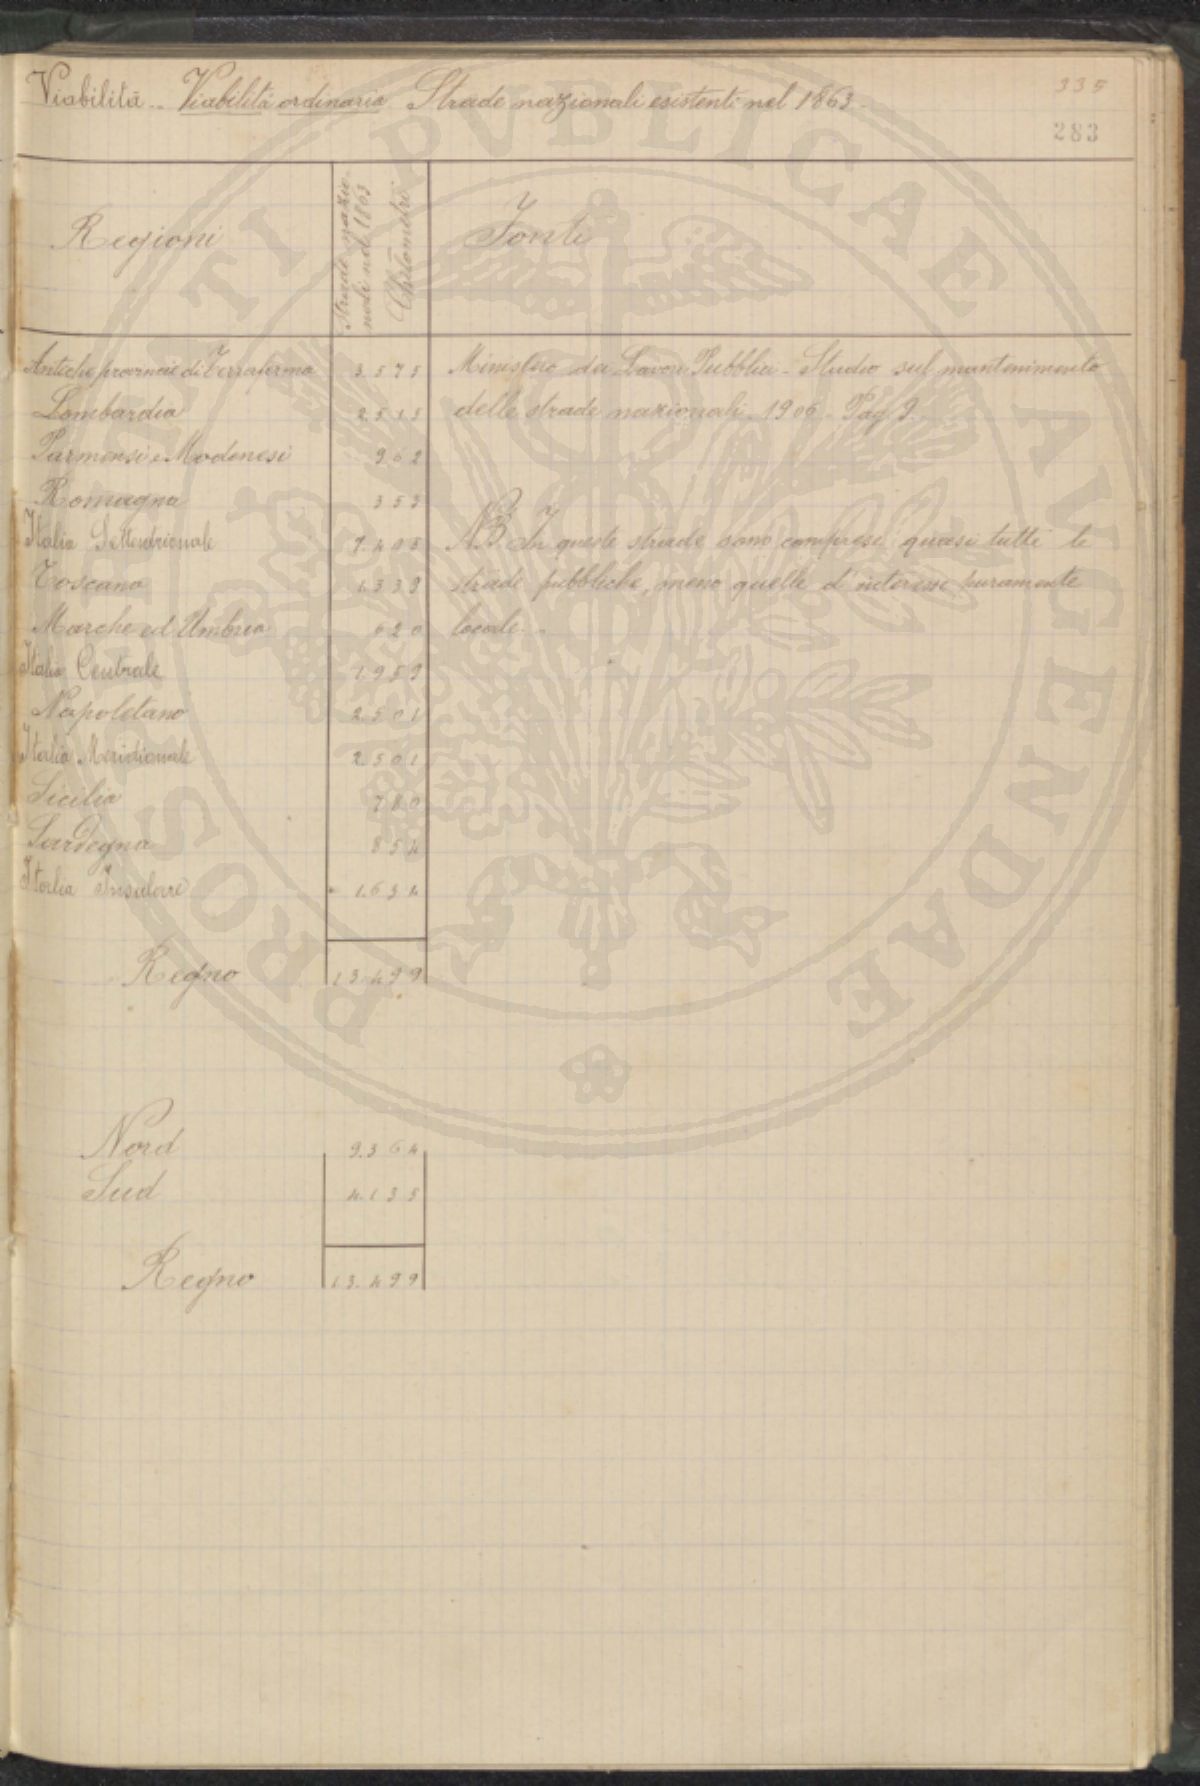 Viabilità - Viabilità ordinaria Strade nazionali esistenti nel 1863.
335
283
Regioni
Strade nazio-
nali nel 1863
Chilometri
Fonti
Antiche provincie di Terraferma 3 5 7 5 Ministero dei Lavori Pubblici - Studio sul mantenimento
Lombardia 2.5 1 5 delle strade nazionali. 1906 - Pag 9.
Parmensi e Modenesi 9 6 2
Romagna 3 5 3
Italia Settentrionale 7.4 0 5 NB In queste strade sono comprese quasi tutte le
Toscana 1.3 3 9 strade pubbliche, meno quelle d'interesse puramente
Marche ed Umbria 6 2 0 locale.
Italia Centrale 1.9 5 9
Napoletano 2.5 0 1
Italia Meridionale 2.5 0 1
Sicilia 7 8 0
Sardegna 8 5 4
Italia Insulare 1.6 3 4
Regno 1 3.4 9 9
Nord 9.3 6 4
Sud 4.1 3 5
Regno 1 3.4 9 9
PROSPERITATI PVBLICAE AVGENDAE